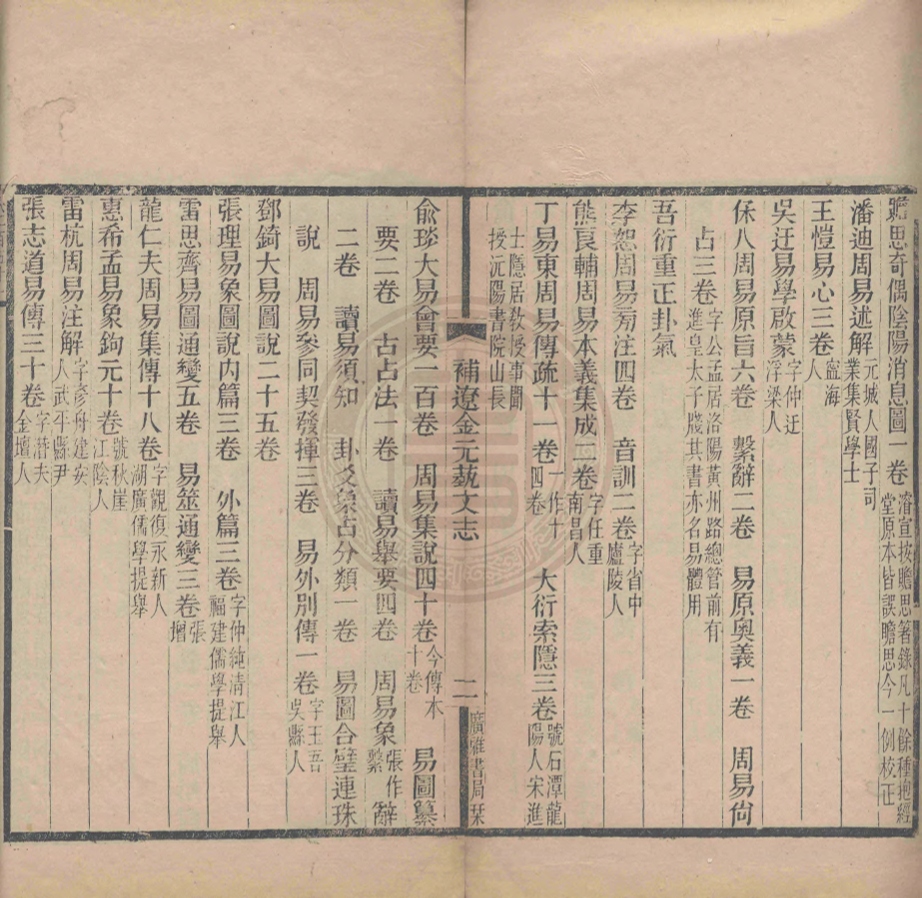 贍思奇偶陰陽消息圖一卷 濬宣按贍思著錄凡十餘種抱經堂原本皆誤瞻思今一例校正
潘迪周易述解 元城人國子司業集賢學士
王愷易心三卷 寧海人
吳迂易學啟蒙 字仲迂浮梁人
保八周易原旨六卷 繫辭二卷 易原奧義一卷 周易尙
占三卷 字公孟居洛陽黃州路總管前有進皇太子牋其書亦名易體用
吾衍重正卦氣
李恕周易旁注四卷 音訓二卷 字省中廬陵人
熊良輔周易本義集成二卷 字任重南昌人
丁易東周易傳疏十一卷 一作十四卷 大衍索隱三卷 號石潭龍陽人宋進
士隱居敎授事聞授沅陽書院山長
補遼金元藝文志 二 廣雅書局栞
俞琰大易會要一百卷 周易集說四十卷 今傳本十卷 易圖纂
要二卷 古占法一卷 讀易舉要四卷 周易象辭 張作繫
二卷 讀易須知 卦爻象占分類一卷 易圖合璧連珠
說 周易參同契發揮三卷 易外別傳一卷 字玉吾吳縣人
鄧錡大易圖說二十五卷
張理易象圖說内篇三卷 外篇三卷 字仲純清江人福建儒學提舉
雷思齊易圖通變五卷 易筮通變三卷 張增
龍仁夫周易集傳十八卷 字觀復永新人湖廣儒學提舉
惠希孟易象鉤元十卷 號秋崖江陰人
雷杭周易注解 字彥舟建安人武平縣尹
張志道易傳三十卷 字潛夫金壇人